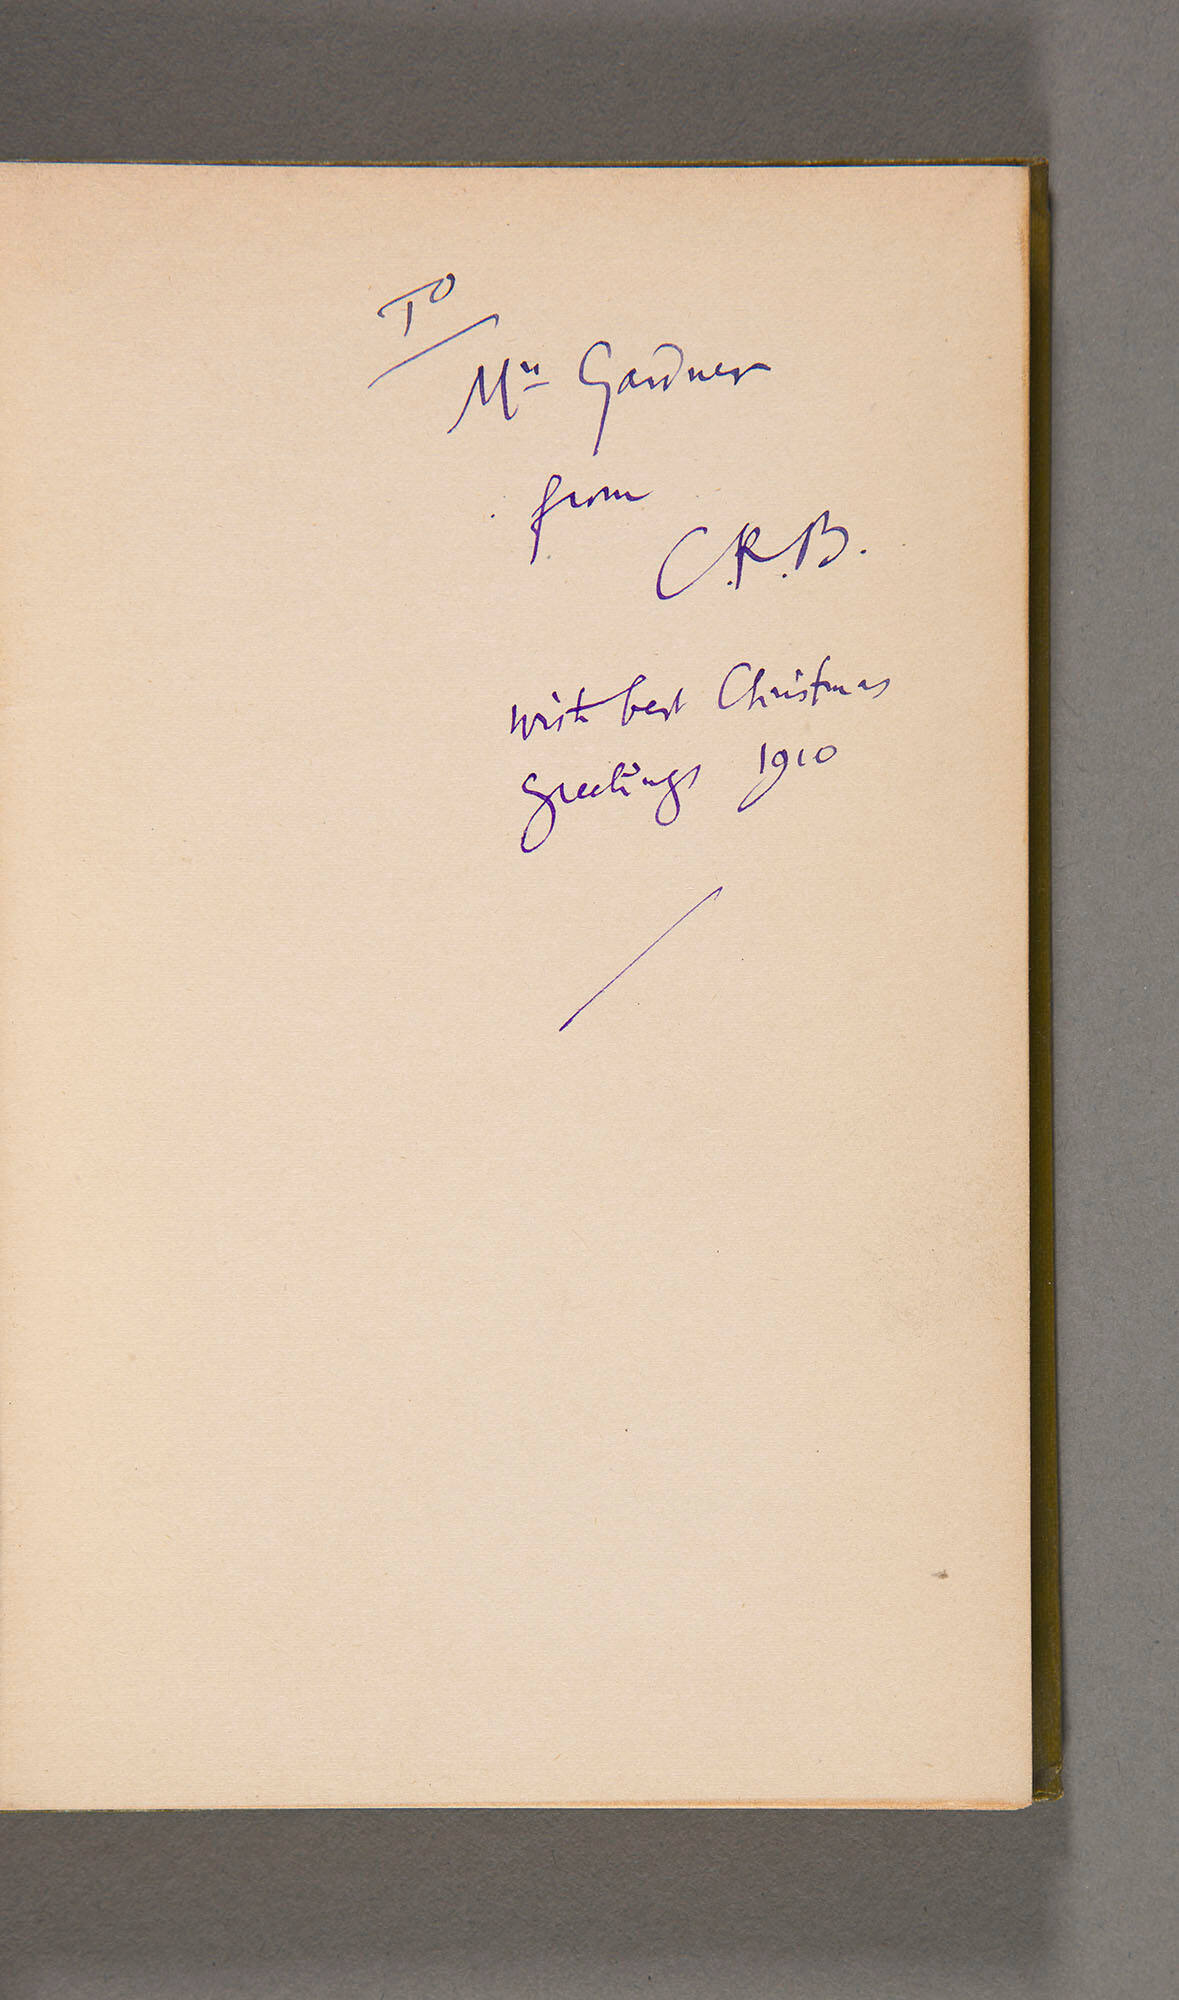 To
Mrs Gardner
from
C.R.B.
with best Christmas
greetings 1910